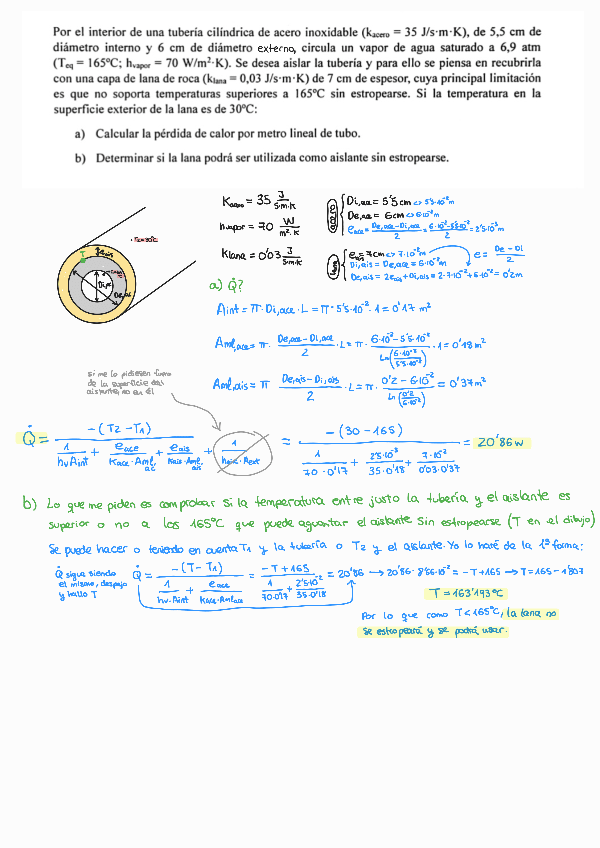 Por el interior de una tubería cilíndrica de acero inoxidable (kacero = 35 J/s·m·K), de 5,5 cm de
diámetro interno y 6 cm de diámetro externo, circula un vapor de agua saturado a 6,9 atm
(Teq = 165ºC; hvapor = 70 W/m²·K). Se desea aislar la tubería y para ello se piensa en recubrirla
con una capa de lana de roca (klana = 0,03 J/s·m·K) de 7 cm de espesor, cuya principal limitación
es que no soporta temperaturas superiores a 165ºC sin estropearse. Si la temperatura en la
superficie exterior de la lana es de 30ºC:
a) Calcular la pérdida de calor por metro lineal de tubo.
b) Determinar si la lana podrá ser utilizada como aislante sin estropearse.
Kacero = 35 J/s·m·K
hvapor = 70 W/m²·K
Klana = 0'03 J/s·m·K
acero
Di,ace = 5'5cm <> 5'5·10⁻²m
De,ace = 6cm <> 6·10⁻²m
eace = De,ace - Di,ace / 2 = 6·10⁻² - 5'5·10⁻² / 2 = 2'5·10⁻³m
eais = 7cm <> 7·10⁻²m
e = De - Di / 2
Di,ais = De,ace = 6·10⁻²m
De,ais = 2eais + Di,ais = 2·7·10⁻² + 6·10⁻² = 0'2m
T
eais
Di,ac
De,ac
a) Q̇?
Aint = π·Di,ace·L = π·5'5·10⁻²·1 = 0'17 m²
Aml,ace = π· De,ace - Di,ace / 2 ·L = π· 6·10⁻² - 5'5·10⁻² / Ln(6·10⁻² / 5'5·10⁻²) ·1 = 0'18m²
Aml,ais = π De,ais - Di,ais / 2 ·L = π· 0'2 - 6·10⁻² / Ln(0'2 / 6·10⁻²) = 0'37m²
si me lo pidiesen fuera
de la superficie del
aislante, no en él
Q̇ = -(T2 - T1) / (1/hvAint + eace/Kace·Aml,ac + eais/Kais·Aml,ais + 1/haire·Aext) = -(30 - 165) / (1/70·0'17 + 2'5·10⁻³/35·0'18 + 7·10⁻²/0'03·0'37) = 20'86w
b) Lo que me piden es comprobar si la temperatura entre justo la tubería y el aislante es
superior o no a los 165ºC que puede aguantar el aislante sin estropearse (T en el dibujo)
Se puede hacer o teniendo en cuenta T1 y la tubería o T2 y el aislante. Yo lo haré de la 1ª forma:
Q̇ sigue siendo
el mismo, despejo
y hallo T
Q̇ = -(T - T1) / (1/hv·Aint + eace/Kace·Amlace) = -T + 165 / (1/70·0'17 + 2'5·10⁻²/35·0'18) = 20'86 → 20'86·8'66·10⁻² = -T + 165 → T = 165 - 1'807
T = 163'193ºC
Por lo que como T < 165ºC, la lana no
se estropeará y se podrá usar.